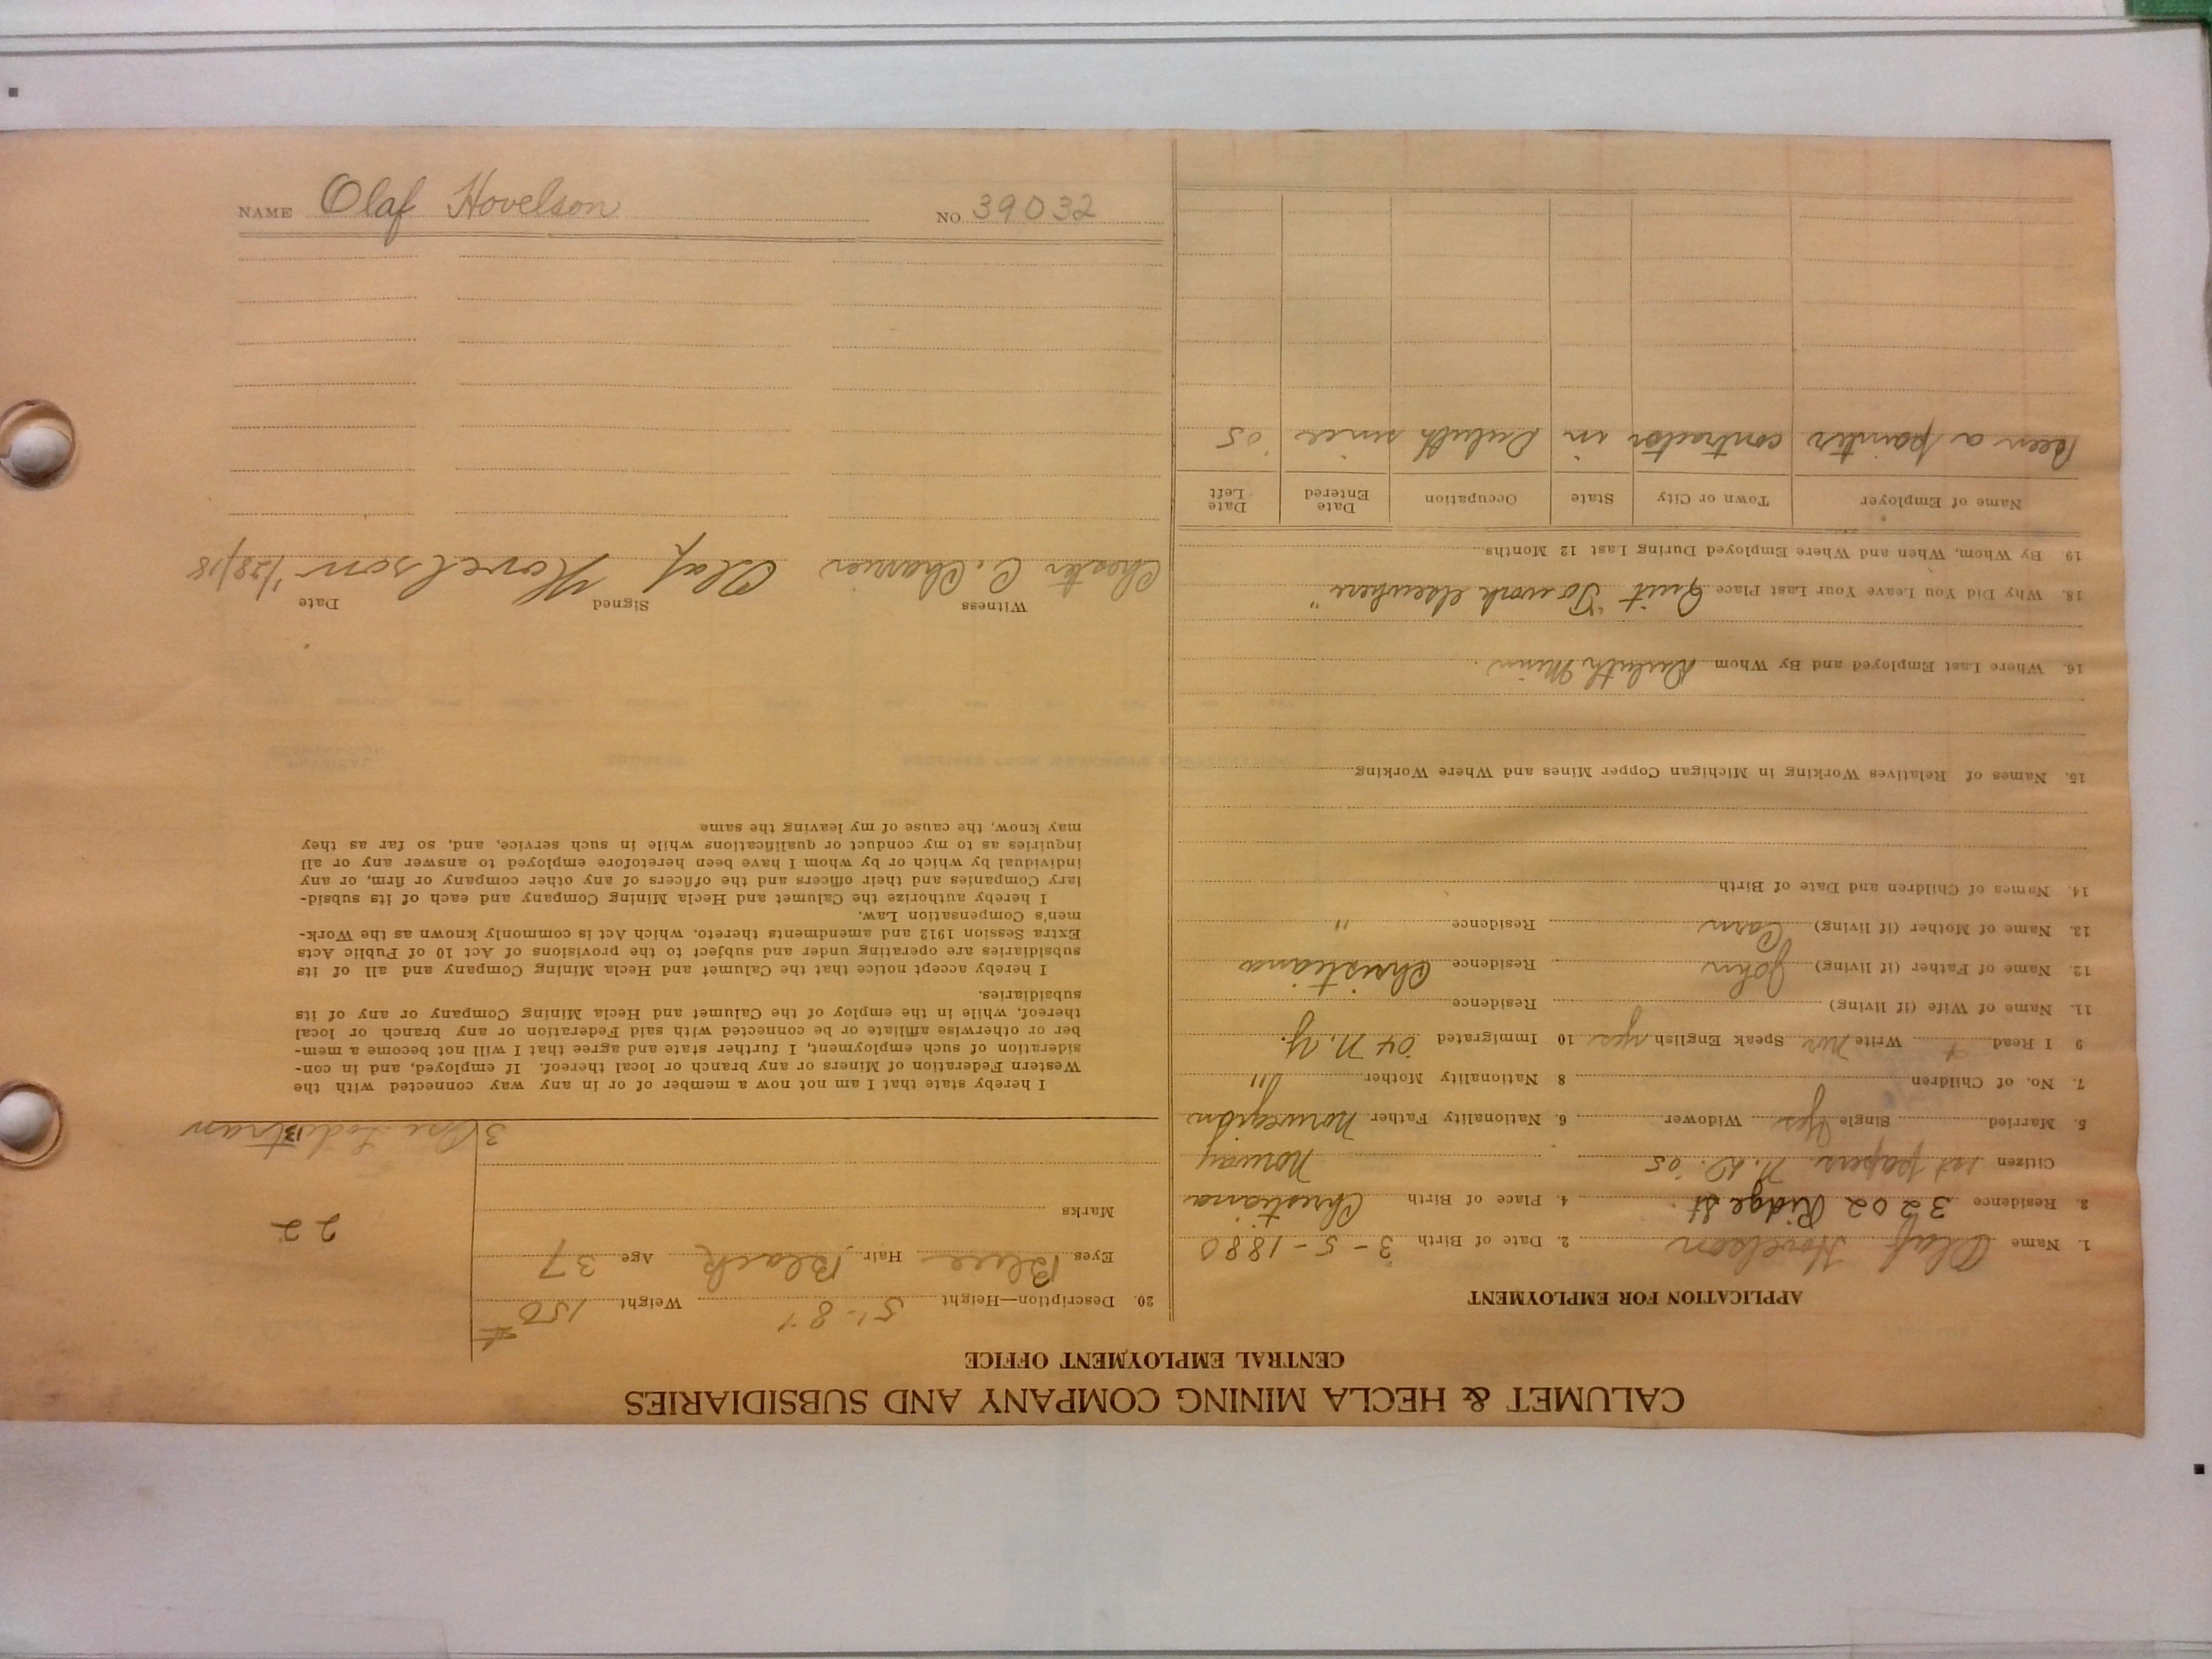 CALUMET & HECLA MINING COMPANY AND SUBSIDIARIES
CENTRAL EMPLOYMENT OFFICE
APPLICATION FOR EMPLOYMENT
1. Name Olaf Hovelson 2. Date of Birth 3-5-1880
3. Residence 3202 Ridge St. 4. Place of Birth Christiana
Citizen 1st papers N.D. 05 Norway
5. Married Single Yes Widower 6. Nationality Father Norwegian
7. No. of Children 8 Nationality Mother "
9 I Read Write Speak English yes 10 Immigrated 04 N.Y.
11. Name of Wife (if living) Residence
12. Name of Father (if living) John Residence Christiana
13. Name of Mother (if living) Residence "
14. Names of Children and Date of Birth
15. Names of Relatives Working in Michigan Copper Mines and Where Working
16. Where Last Employed and By Whom Duluth Minn
18. Why Did You Leave Your Last Place Quit "To work elsewhere"
19. By Whom, When and Where Employed During Last 12 Months
Name of Employer Town or City State Occupation Date Entered Date Left
Been a painter contractor in Duluth since '05
20. Description—Height 5'-8" Weight 150 #
Eyes Blue Hair Black Age 37
Marks
22
I hereby state that I am not now a member of or in any way connected with the
Western Federation of Miners or any branch or local thereof. If employed, and in con-
sideration of such employment, I further state and agree that I will not become a mem-
ber or otherwise affiliate or be connected with said Federation or any branch or local
thereof, while in the employ of the Calumet and Hecla Mining Company or any of its
subsidiaries.
I hereby accept notice that the Calumet and Hecla Mining Company and all of its
subsidiaries are operating under and subject to the provisions of Act 10 of Public Acts
Extra Session 1912 and amendments thereto, which Act is commonly known as the Work-
men's Compensation Law.
I hereby authorize the Calumet and Hecla Mining Company and each of its subsid-
iary Companies and their officers and the officers of any other company or firm, or any
individual by which or by whom I have been heretofore employed to answer any or all
inquiries as to my conduct or qualifications while in such service, and, so far as they
may know, the cause of my leaving the same
Witness Signed Date
Chester C. Olaf Hovelson 1/28/18
NAME Olaf Hovelson NO. 39032